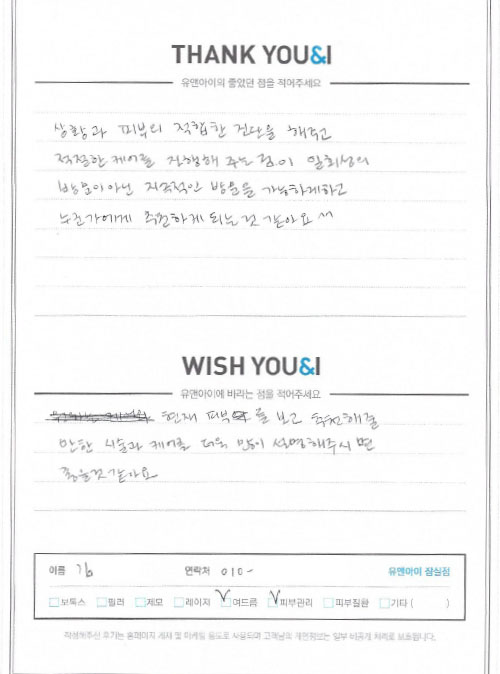 THANK YOU&I
유앤아이의 좋았던 점을 적어주세요
상황과 피부의 적합한 진단을 해주고
적절한 케어를 진행해 주는 점이 일회성의
방문이아닌 지속적인 방문을 가능하게하고
누군가에게 추천하게 되는것 같아요 ^^
WISH YOU&I
유앤아이에 바라는 점을 적어주세요
현재 피부를 보고 추천해줄
만한 시술과 케어를 더욱 많이 설명해주시면
좋을것같아요
이름 김 연락처 010- 유앤아이 잠실점
보톡스 필러 제모 레이저 여드름 피부관리 피부질환 기타 ( )
작성해주신 후기는 홈페이지 게재 및 마케팅 용도로 사용되며 고객님의 개인정보는 일부 비공개 처리로 보호됩니다.